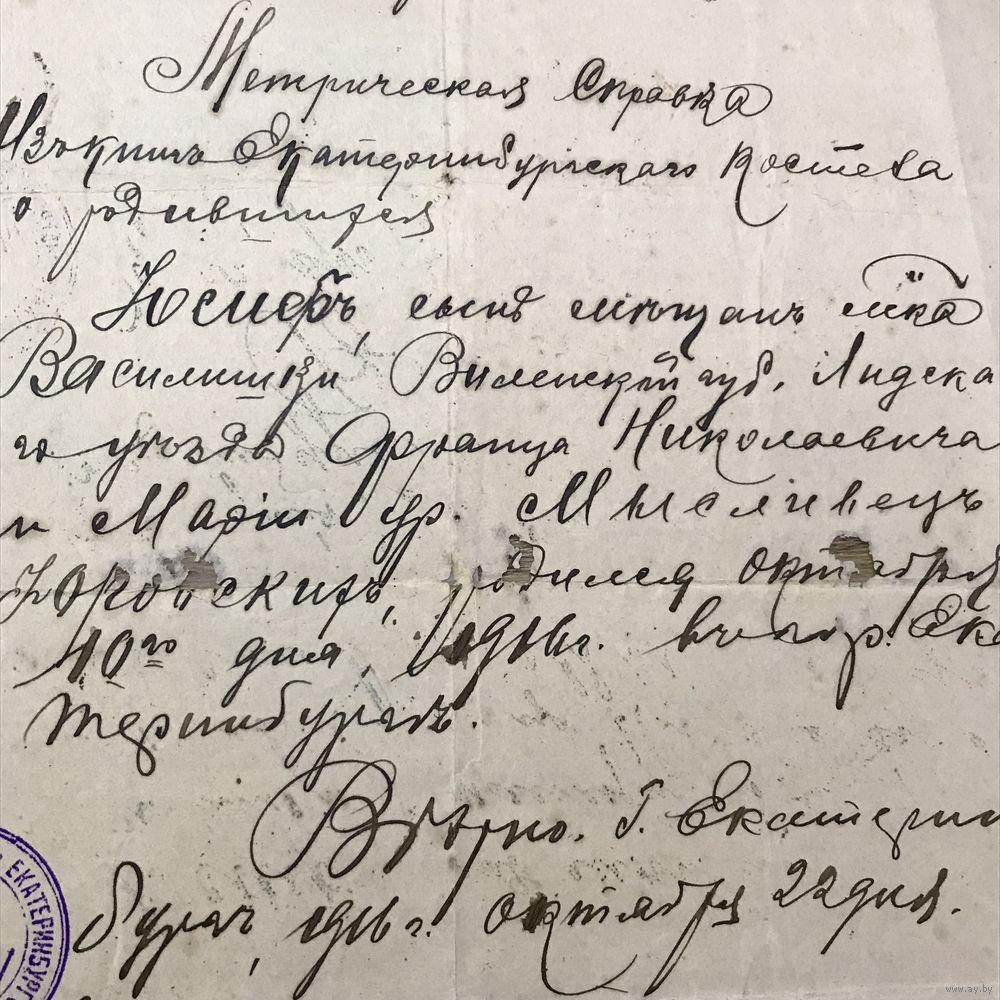 Метрическая Справка
Изъ книгъ Екатеринбургскаго Костела
о родившихся
Юсифъ, сынъ мѣщанъ м-ка
Василишки Виленской губ. Лидска
го уѣзда Франца Николаевича
и Маріи ур. Мысливецъ
родился октября
10го дня, 1916 г. въ гор. Ека
теринбургѣ.
Вѣрно. Г. Екатерин
бургъ, 1916 г. октября 22 дня.
ЕКАТЕРИНБУРГ
www.ay.by